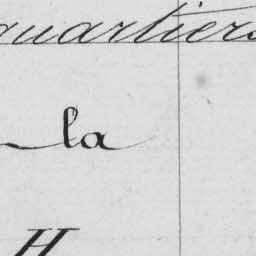 quartiers
la
H